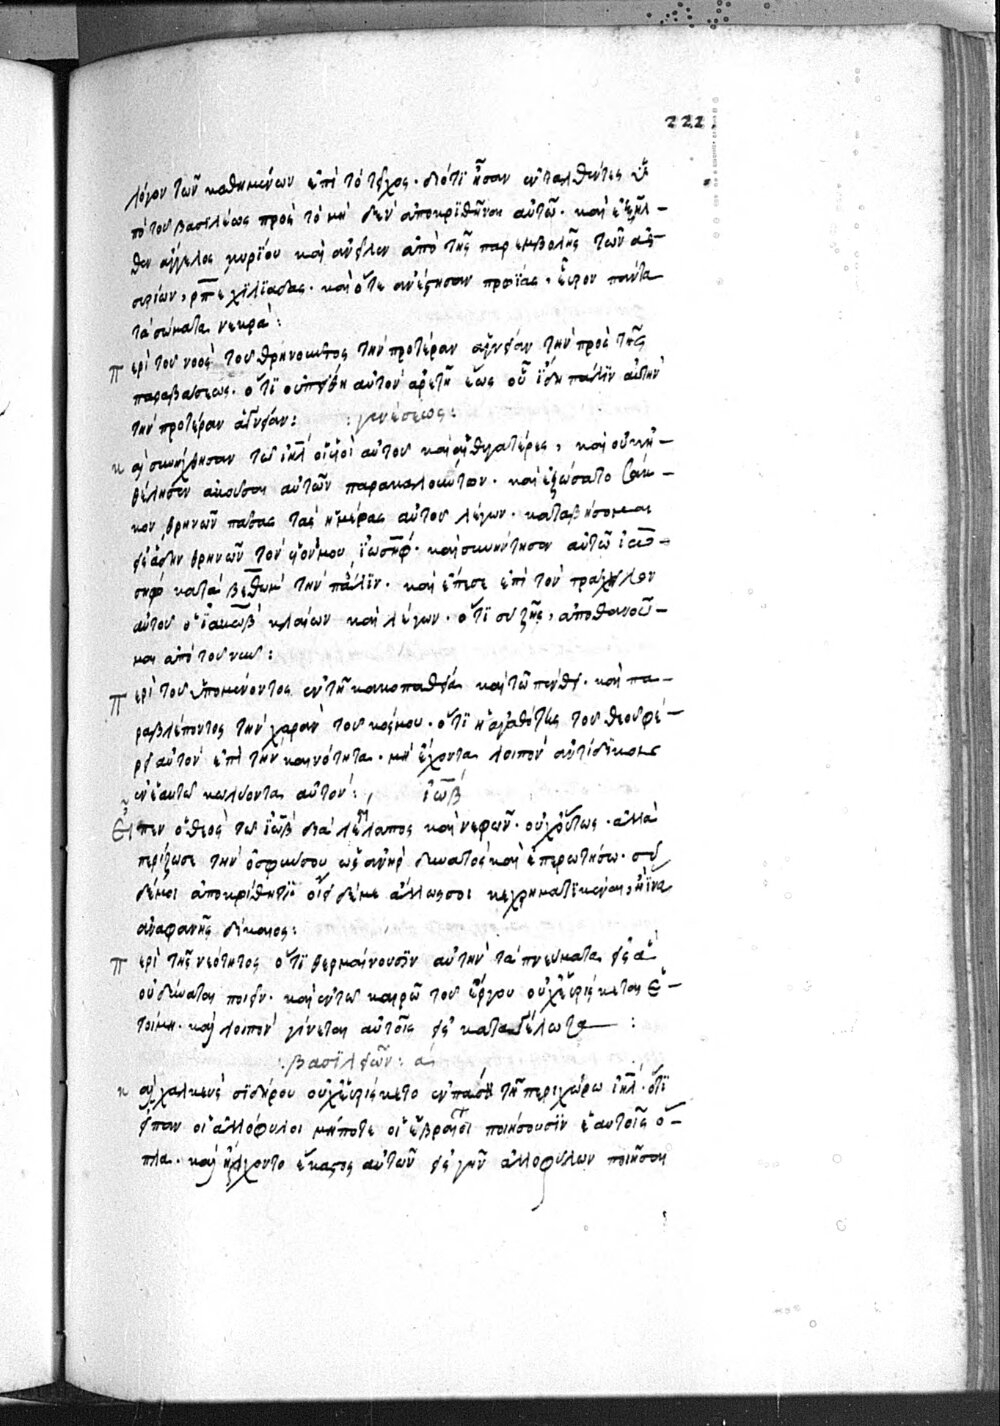 222
λόγον τῶν καθημένων ἐπὶ τὸ τεῖχος· διότι ἦσαν ἐνταλθέντες ὑ
πὸ τοῦ βασιλέως πρὸς τὸ μὴ δὲν ἀποκριθῆναι αὐτῶ· καὶ ἐξῆλ-
θεν ἄγγελος κυρίου καὶ ἀνεῖλεν ἀπὸ τῆς παρεμβολῆς τῶν ἀσ-
συρίων, ρπε χιλιάδας· καὶ ὅτε ἀνέστησαν πρωίας, εὗρον πάντα
τὰ σώματα νεκρά:
περὶ τοῦ νοὸς τοῦ θρηνοῦντος τὴν προτέραν ἁγνείαν τὴν πρὸ τῆς
παραβάσεως· ὅτι οὐ πείθει αὐτὸν ἀρετὴ ἕως οὗ ἴδη πάλιν αὐτὴν
τὴν προτέραν ἁγνείαν: :γενέσεως:
καὶ συνήχθησαν τῶ ιηλ οἱ υἱοὶ αὐτοῦ καὶ αἱ θυγατέρες, καὶ οὐκ ἠ-
θέλησεν ἀκοῦσαι αὐτῶν παρακαλούντων· καὶ ἐζώσατο σάκ-
κον θρηνῶν πάσας τὰς ἡμέρας αὐτοῦ λέγων· καταβήσομαι
εἰς ἅδην θρηνῶν τὸν υἱόν μου ἰωσήφ· καὶ συνήντησεν αὐτῶ ἰω-
σὴφ κατὰ τὴν πάλιν· καὶ ἔπεσε ἐπὶ τὸν τράχηλον
αὐτοῦ ὁ ἰακὼβ κλαίων καὶ λέγων· ὅτι σὺ ζῆς, ἀποθανοῦ-
μαι ἀπὸ τοῦ νῦν:
περὶ τοῦ ὑπομένοντος ἐν τῆ κακοπαθεία καὶ τῶ πένθει· καὶ πα-
ραβλέποντος τὴν χαρὰν τοῦ κόσμου· ὅτι ἡ ἀγαθότης τοῦ θεοῦ φέ-
ρει αὐτὸν ἐπὶ τὴν καινότητα· μὴ ἔχοντα λοιπὸν ἀντίδικον
ἐν ἑαυτῶ κωλύοντα αὐτόν: ἰώβ
Εἶπεν ὁ θεὸς τῶ ἰὼβ διὰ λαίλαπος καὶ νεφῶν· οὐχ οὕτως· ἀλλὰ
περίζωσε τὴν ὀσφύν σου ὡς ἀνὴρ δυνατὸς καὶ ἐπερωτήσω· σὺ
δέ μοι ἀποκρίθητι· οἴει δέ με ἄλλως σοι κεχρηματικέναι, ἢ ἵνα
ἀναφανῆς δίκαιος:
περὶ τῆς νεότητος ὅτι θερμαίνουσιν αὐτὴν τὰ πνεύματα εἰς ἃ
οὐ δύναται ποιεῖν· καὶ ἐν τῶ καιρῶ τοῦ ἔργου οὐχ εὑρίσκεται ἑ-
τοίμη· καὶ λοιπὸν γίνεται αὐτοῖς εἰς κατάγέλωτα:
:βασιλειῶν: α
καὶ χαλκεὺς σιδήρου οὐχ εὑρίσκετο ἐν πάση τῆ περιχώρω ιηλ· ὅτι
εἶπαν οἱ ἀλλόφυλοι μήποτε οἱ ἑβραῖοι ποιήσουσιν ἑαυτοῖς ὅ-
πλα· καὶ ἤρχοντο ἕκαστος αὐτῶν εἰς γῆν ἀλλοφύλων ποιῆσαι